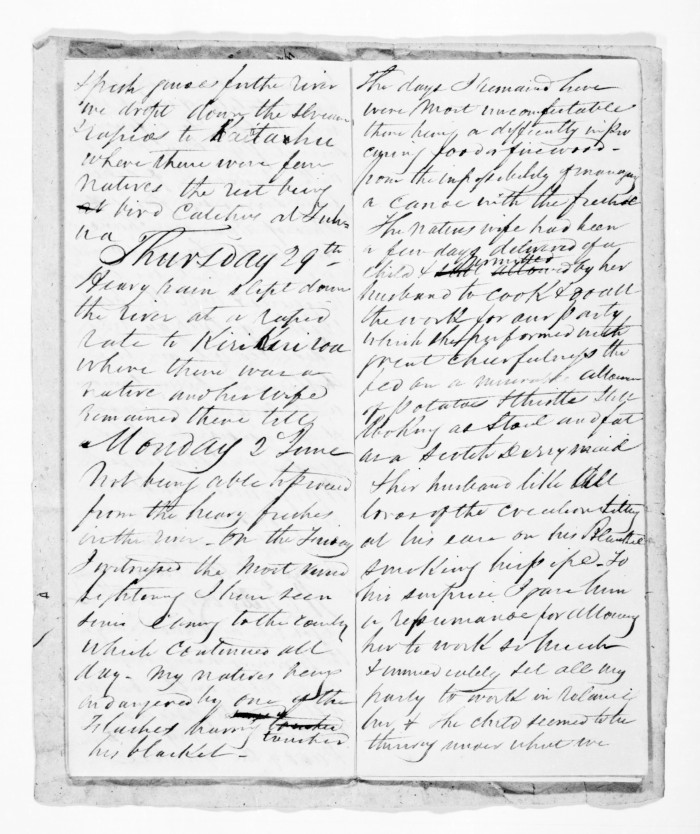 & fresh
we dropt down the
rapids to
where there were few
Natives the rest being
bird Catching at Tuh-
ua
Thursday 29th
Heavy rain slept down
the river at a rapid
rate to Kirikiriroa
where there was a
native and his Wife
remained there till
Monday 2d June
Not being able to proceed
from the heavy freshes
in the river. On the Sunday
I witnessed the Most vivid
Lightning I have seen
since I came to the country
which continued all
day - My natives being
endangered by one of the
Flashes having
touched
his blanket -
The days I remained here
were Most uncomfortable
there being a difficulty in pro
curing food & firewood -
from the impossibility of managing
a canoe with the freshes
The natives wife had been
a few days delivered of a
child & permitted by her
husband to cook & do all
the work for our Party
which she performed with
great cheerfulness tho
fed on a allowance
of Potatoes & thistles still
looking as and fat
as a Scotch Dairy maid
& her husband like all
lords of the creation sitting
at his ease on his Blanket
smoking his pipe - To
his surprise I gave him
a reprimand for allowing
her to work so much
& immediately set all my
party to work in relieving
her & the child seemed to be
thriving under what we